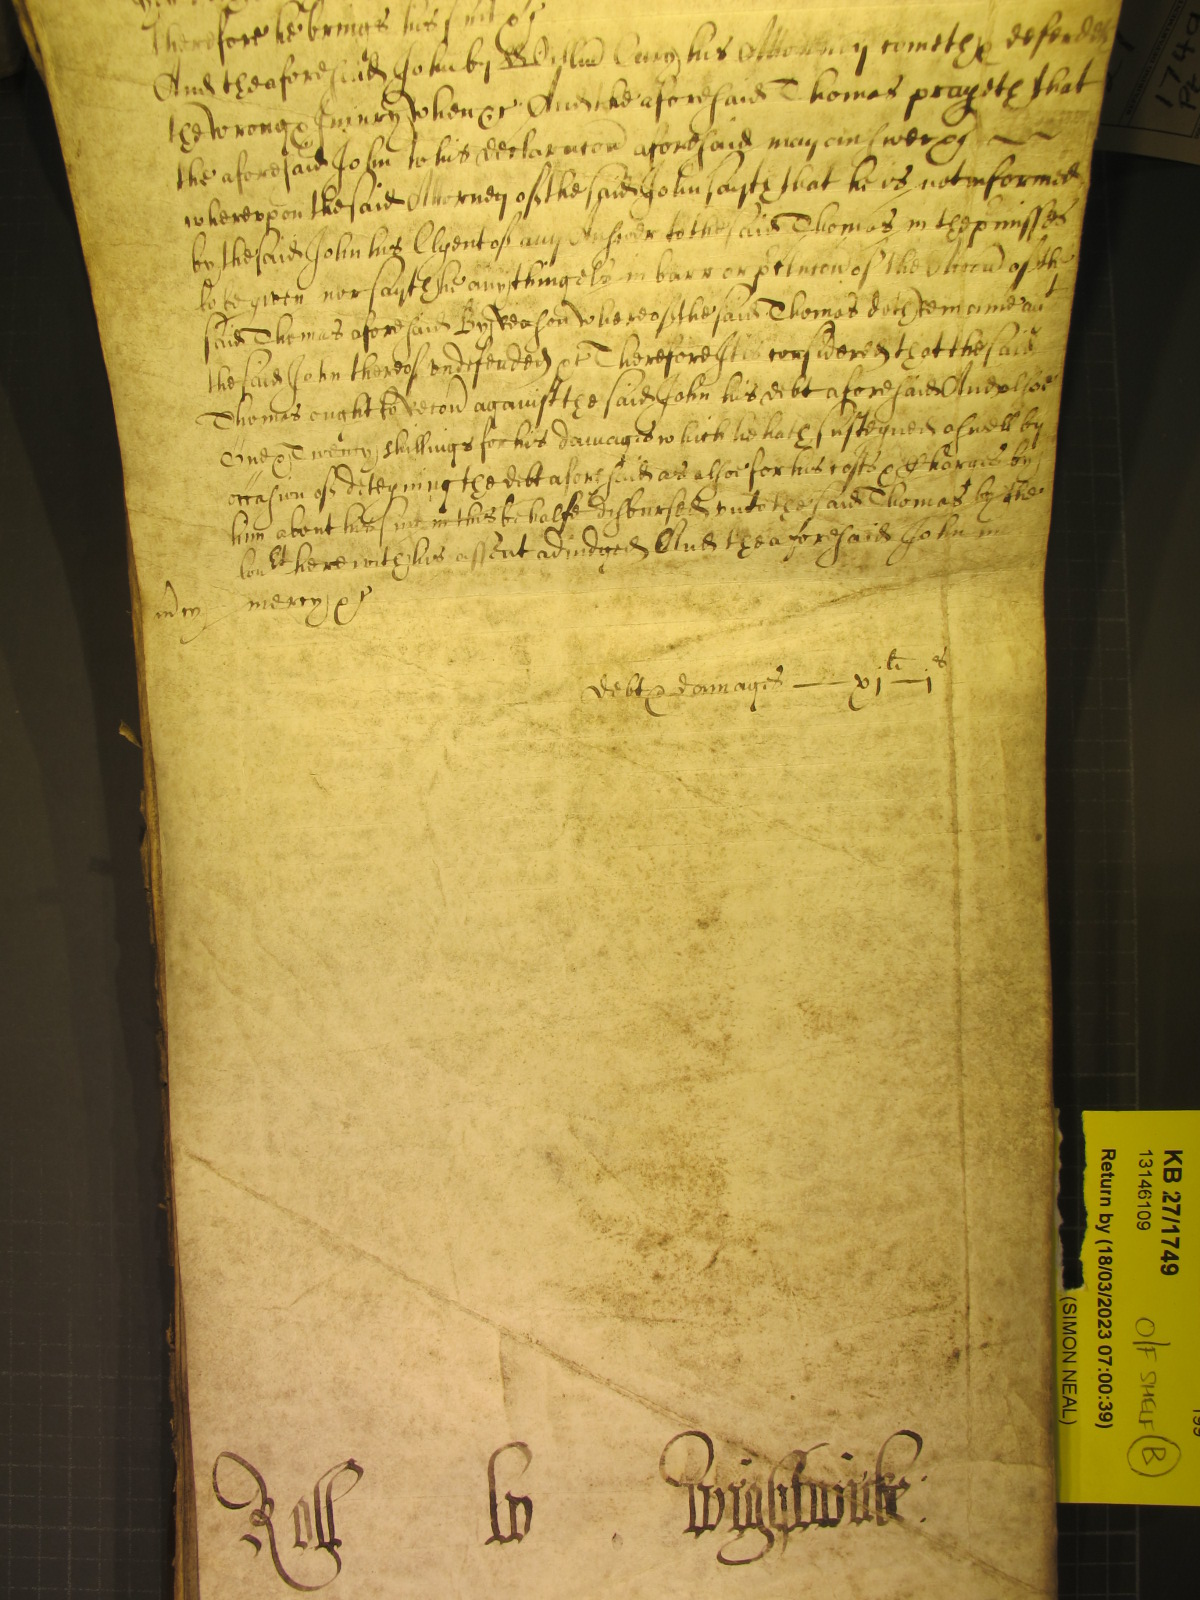 Therefore he brings his suit &c
And the aforesaid John by Cary his Attorney cometh & defendeth
the wrong & Iniury when &c And the aforesaid Thomas prayeth that
the aforesaid John to his declaracon aforesaid may answer &c
wherevpon the said Attorney of the said John sayth that he is not informed
by the said John his Clyent of any Answer to the said Thomas in the pmisses
to be given nor sayth he any thing els in barr or pclusion of the Accon of the
said Thomas aforesaid By reason whereof the said Thomas doth remaine agt
the said John thereof vndefended &c Therefore It is considered that the said
Thomas ought to recou against the said John his debt aforesaid And alsoe
One & Twenty shillings for his damages which he hath susteyned aswell by
occasion of deteyning the debt aforesaid as alsoe for his costs & Charges by
him about his suit in this behalfe disbursed vnto the said Thomas by the
Court here with his assent adiudged And the aforesaid John in
mercy &c
debt & damages — xjli — js
Roll lv . Wightwicke
KB 27/1749
13146109
Return by (18/03/2023 07:00:39)
(SIMON NEAL)
O/F SHELF B